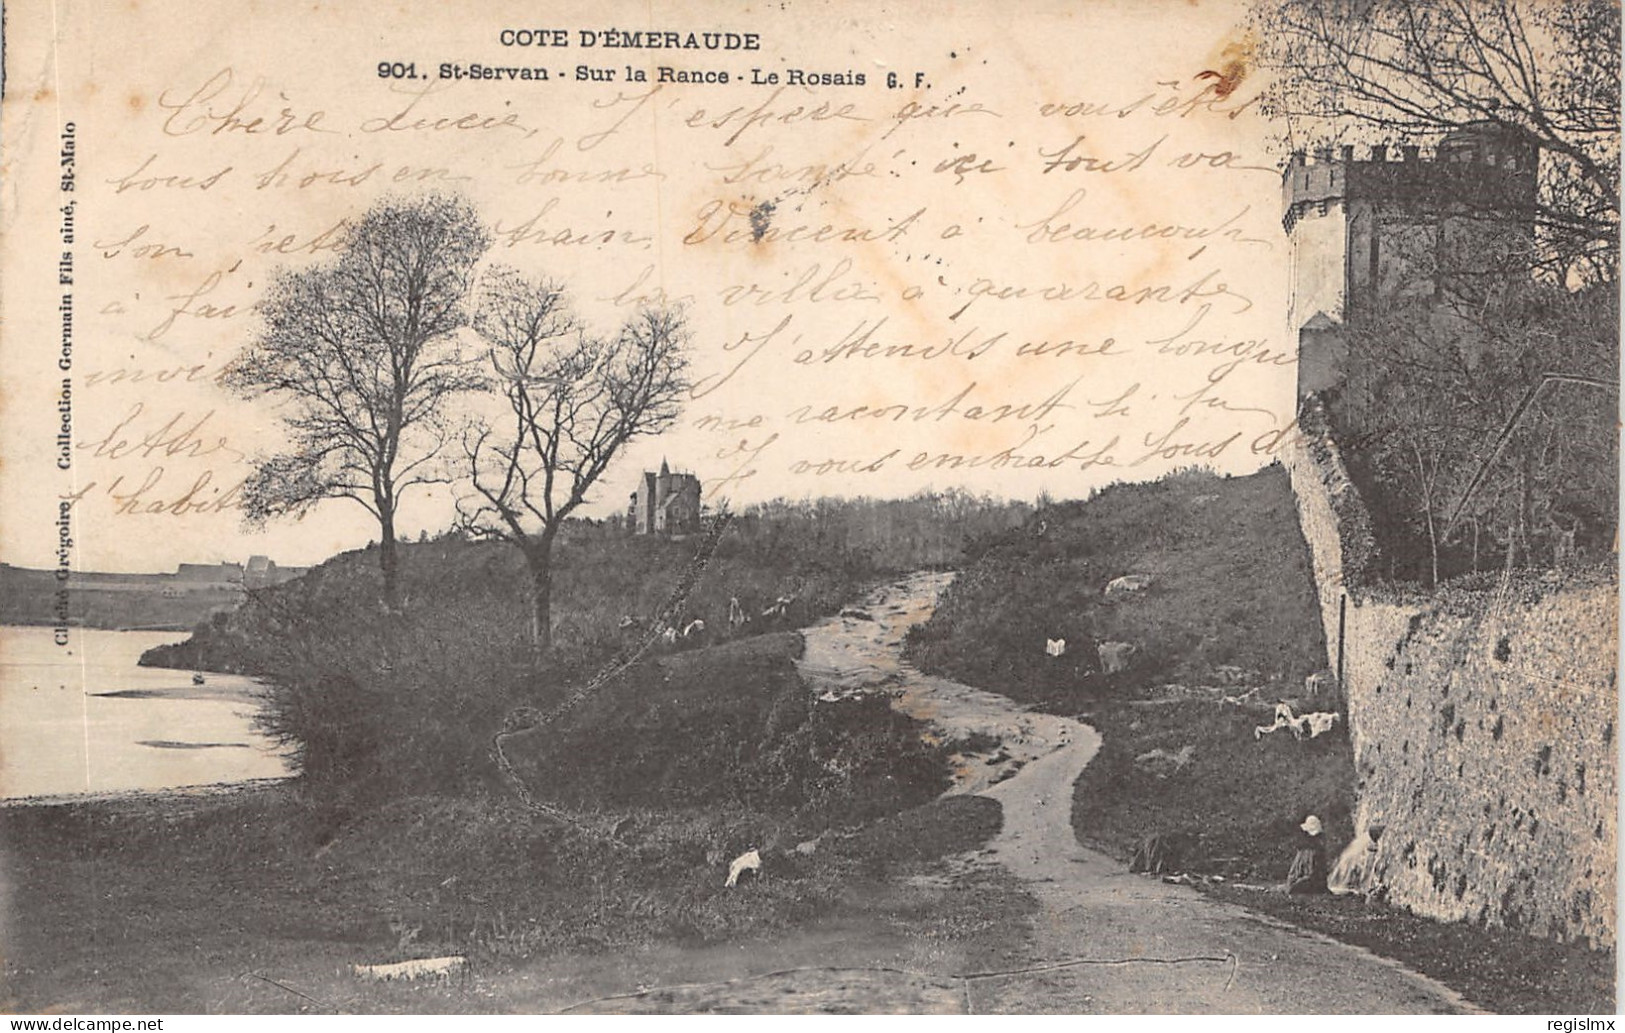 COTE D'ÉMERAUDE
901. St-Servan - Sur la Rance - Le Rosais G. F.
Chère Lucie, J'espère que vous êtes
tous trois en bonne santé. ici tout va
son petit train. Vincent a beaucoup
à faire la villa a quarante
invités J'attends une longue
lettre me racontant si tu
t'habitues Je vous embrasse tous
. Cliché Grégoire. Collection Germain Fils ainé, St-Malo
delcampe.net
regislmx